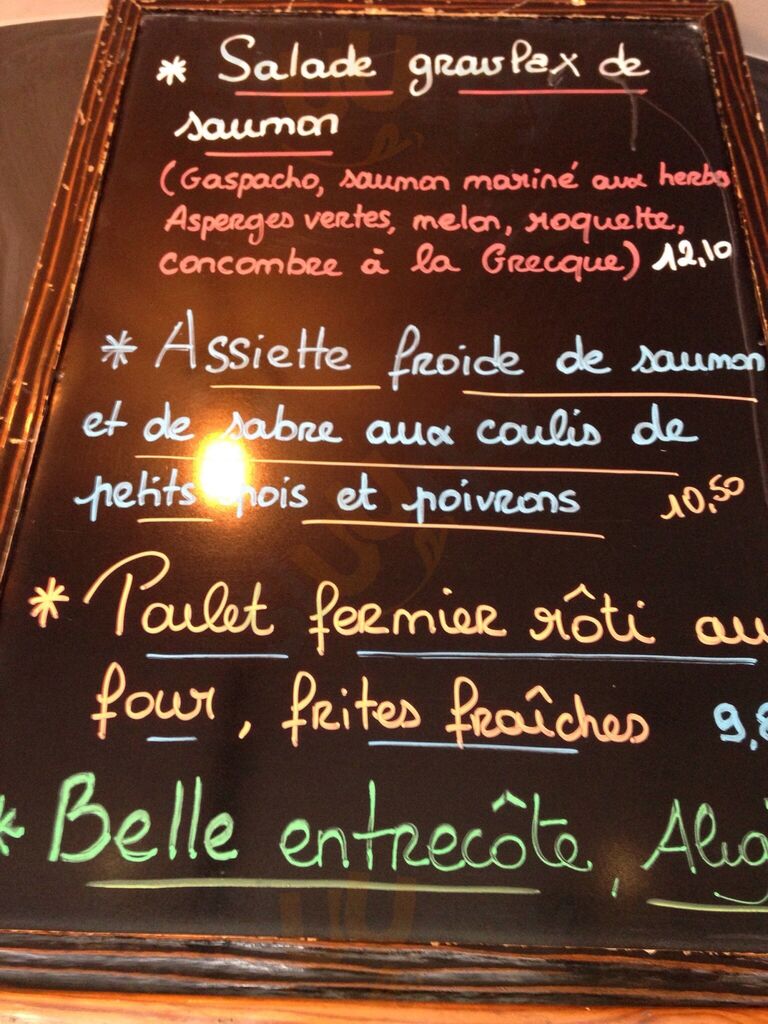 * Salade gravlax de
saumon
(Gaspacho, saumon mariné aux herbs
Asperges vertes, melon, roquette,
concombre à la Grecque) 12,10
* Assiette froide de saumon
et de sabre aux coulis de
petits pois et poivrons 10,50
* Poulet fermier rôti au
four, frites fraîches 9,8
* Belle entrecôte, Alig